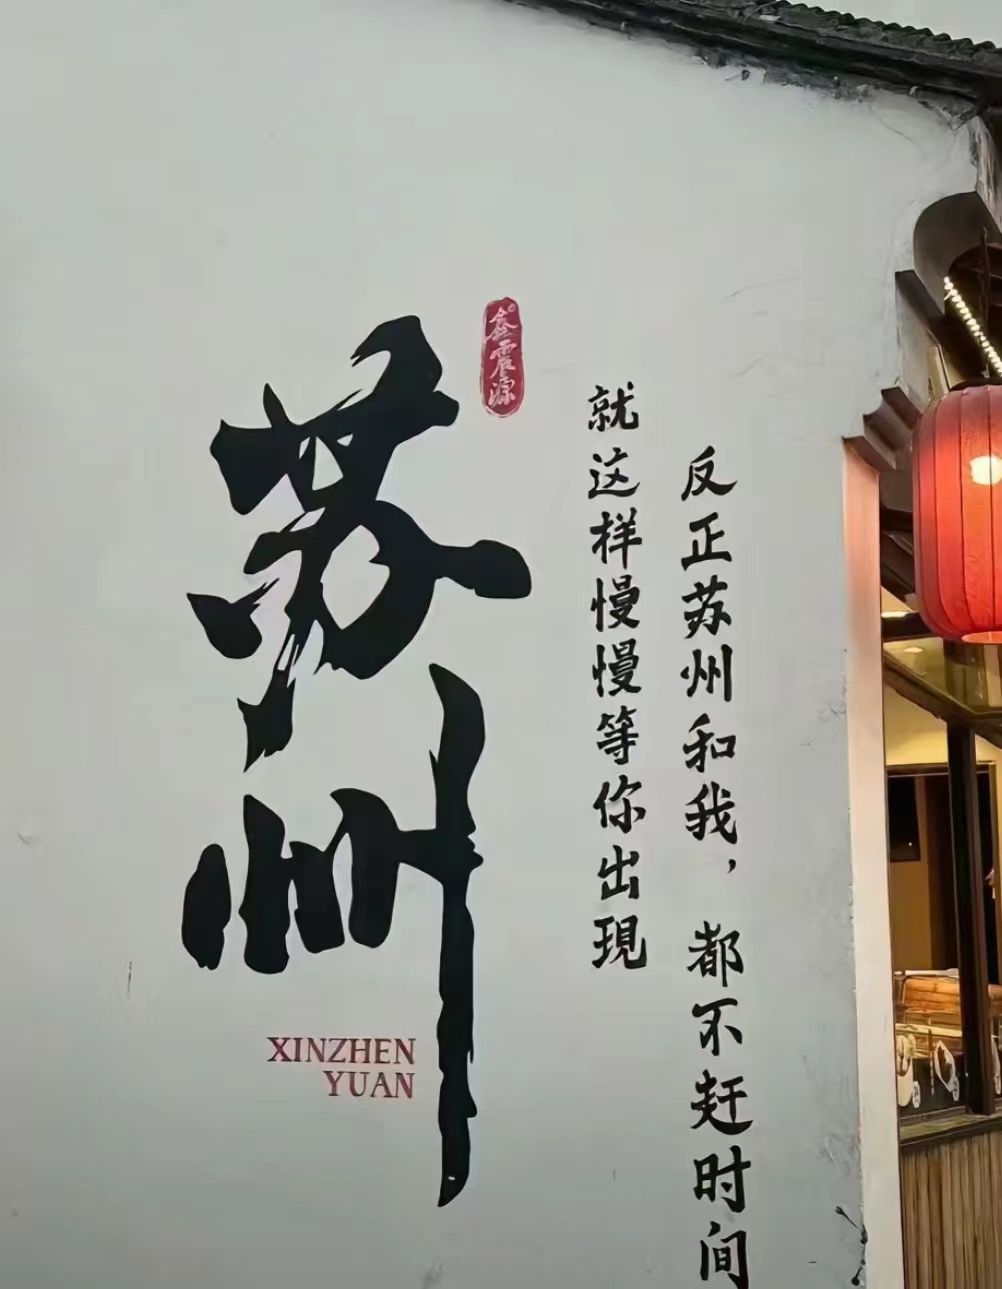 苏州
鑫震源
反正苏州和我，都不赶时间
就这样慢慢等你出現
XINZHEN
YUAN